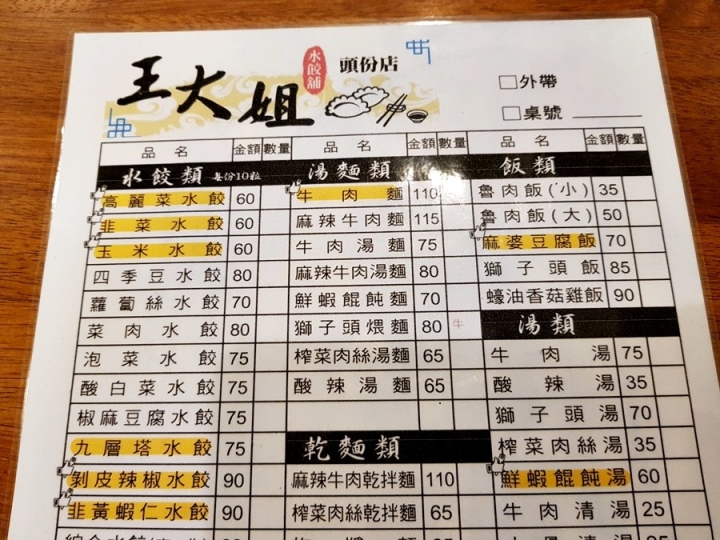 王大姐
水餃舖
頭份店
□外帶
□桌號
品名 金額 數量
水餃類 每份10粒
高麗菜水餃 60
韭菜水餃 60
玉米水餃 60
四季豆水餃 80
蘿蔔絲水餃 70
菜肉水餃 80
泡菜水餃 75
酸白菜水餃 75
椒麻豆腐水餃 75
九層塔水餃 75
剝皮辣椒水餃 90
韭黃蝦仁水餃 90
品名 金額 數量
湯麵類
牛肉麵 110
麻辣牛肉麵 115
牛肉湯麵 75
麻辣牛肉湯麵 80
鮮蝦餛飩麵 70
獅子頭煨麵 80 牛
榨菜肉絲湯麵 65
酸辣湯麵 65
乾麵類
麻辣牛肉乾拌麵 110
榨菜肉絲乾拌麵 65
品名 金額 數量
飯類
魯肉飯(小) 35
魯肉飯(大) 50
麻婆豆腐飯 70
獅子頭飯 85
蠔油香菇雞飯 90
湯類
牛肉湯 75
酸辣湯 35
獅子頭湯 70
榨菜肉絲湯 35
鮮蝦餛飩湯 60
牛肉清湯 25